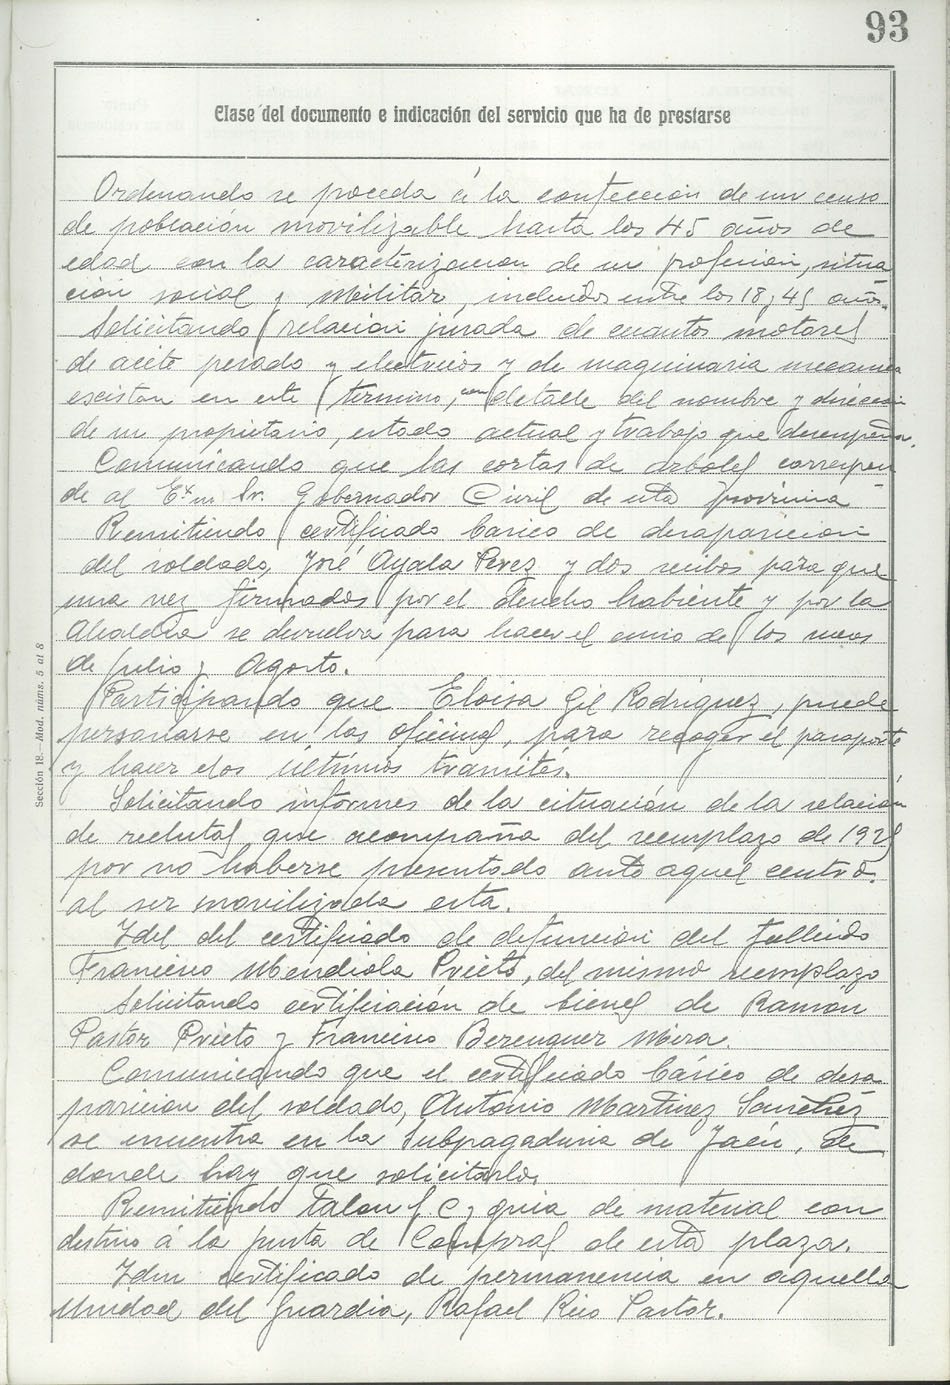 93
Clase del documento e indicación del servicio que ha de prestarse
Ordenando se proceda á la confeccion de un censo
de población movilizable hasta los 45 años de
edad con la caracterizacion de su profesion, situa
cion social y Militar, incluidos entre los 18 y 45 años.
Solicitando relacion jurada de cuantos motores
de aceite pesado y electricos y de maquinaria mecanica
escistan en este termino, con detalle del nombre y direccion
de su propietario, estado actual y trabajo que desempeña.
Comunicando que las cortas de arboles correspon
de al Exmo Sr. Gobernador Civil de esta provincia
Remitiendo certificado basico de desaparicion
del soldado, José Ayala Perez y dos recibos para que
una vez firmados por el derecho habiente y por la
Alcaldia se devuelva para hacer el envio de los meses
de julio y Agosto.
Participando que Eloisa Gil Rodriguez, puede
personarse en las oficinas, para recoger el pasaporte
y hacer los últimos tramites.
Solicitando informes de la cituación de la relacion
de reclutas que acompaña del reemplazo de 1925
por no haberse presentado ante aquel centro.
al ser movilizada esta.
Idel del certificado de defuncion del fallecido
Francisco Mendiola Prieto, del mismo reemplazo
Solicitando certificación de bienes de Ramon
Pastor Prieto y Francisco Berenguer Mira.
Comunicando que el certificado básico de desa
paricion del soldado, Antonio Martinez Sanchez
se encuentra en la Subpagaduria de Jaén, de
donde hay que solicitarlo.
Remitiendo talon f. c. y guia de material con
destino á la junta de Compras de esta plaza.
Idm certificado de permanencia en aquella
Unidad del Guardia, Rafael Rico Pastor.
Sección 18.—Mod. núms. 5 al 8